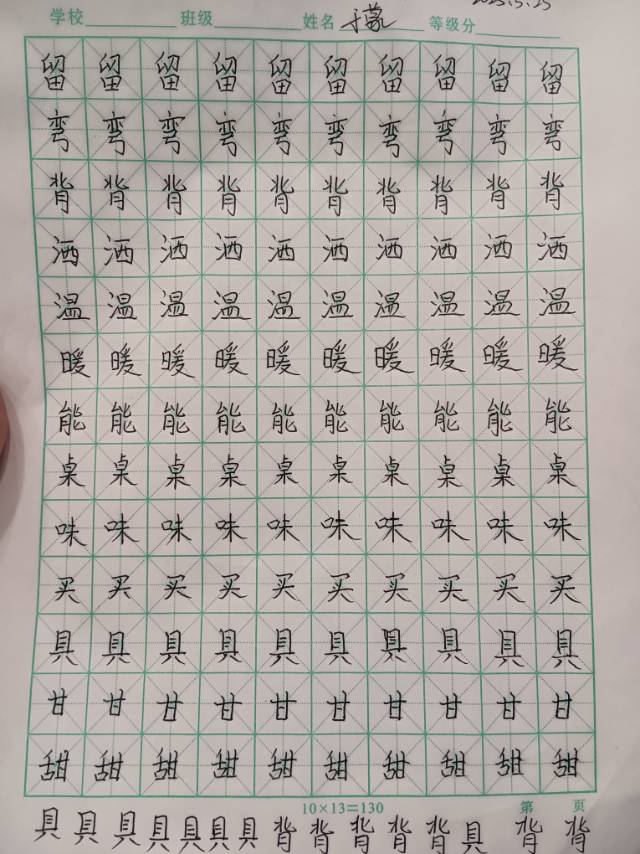 学校 班级 姓名 于蒙 等级分
留留留留留留留留留留
弯弯弯弯弯弯弯弯弯弯
背背背背背背背背背背
洒洒洒洒洒洒洒洒洒洒
温温温温温温温温温温
暖暖暖暖暖暖暖暖暖暖
能能能能能能能能能能
桌桌桌桌桌桌桌桌桌桌
味味味味味味味味味味
买买买买买买买买买买
具具具具具具具具具具
甘甘甘甘甘甘甘甘甘甘
甜甜甜甜甜甜甜甜甜甜
10×13=130 第 页
具具具具具具具背背背背背具背背